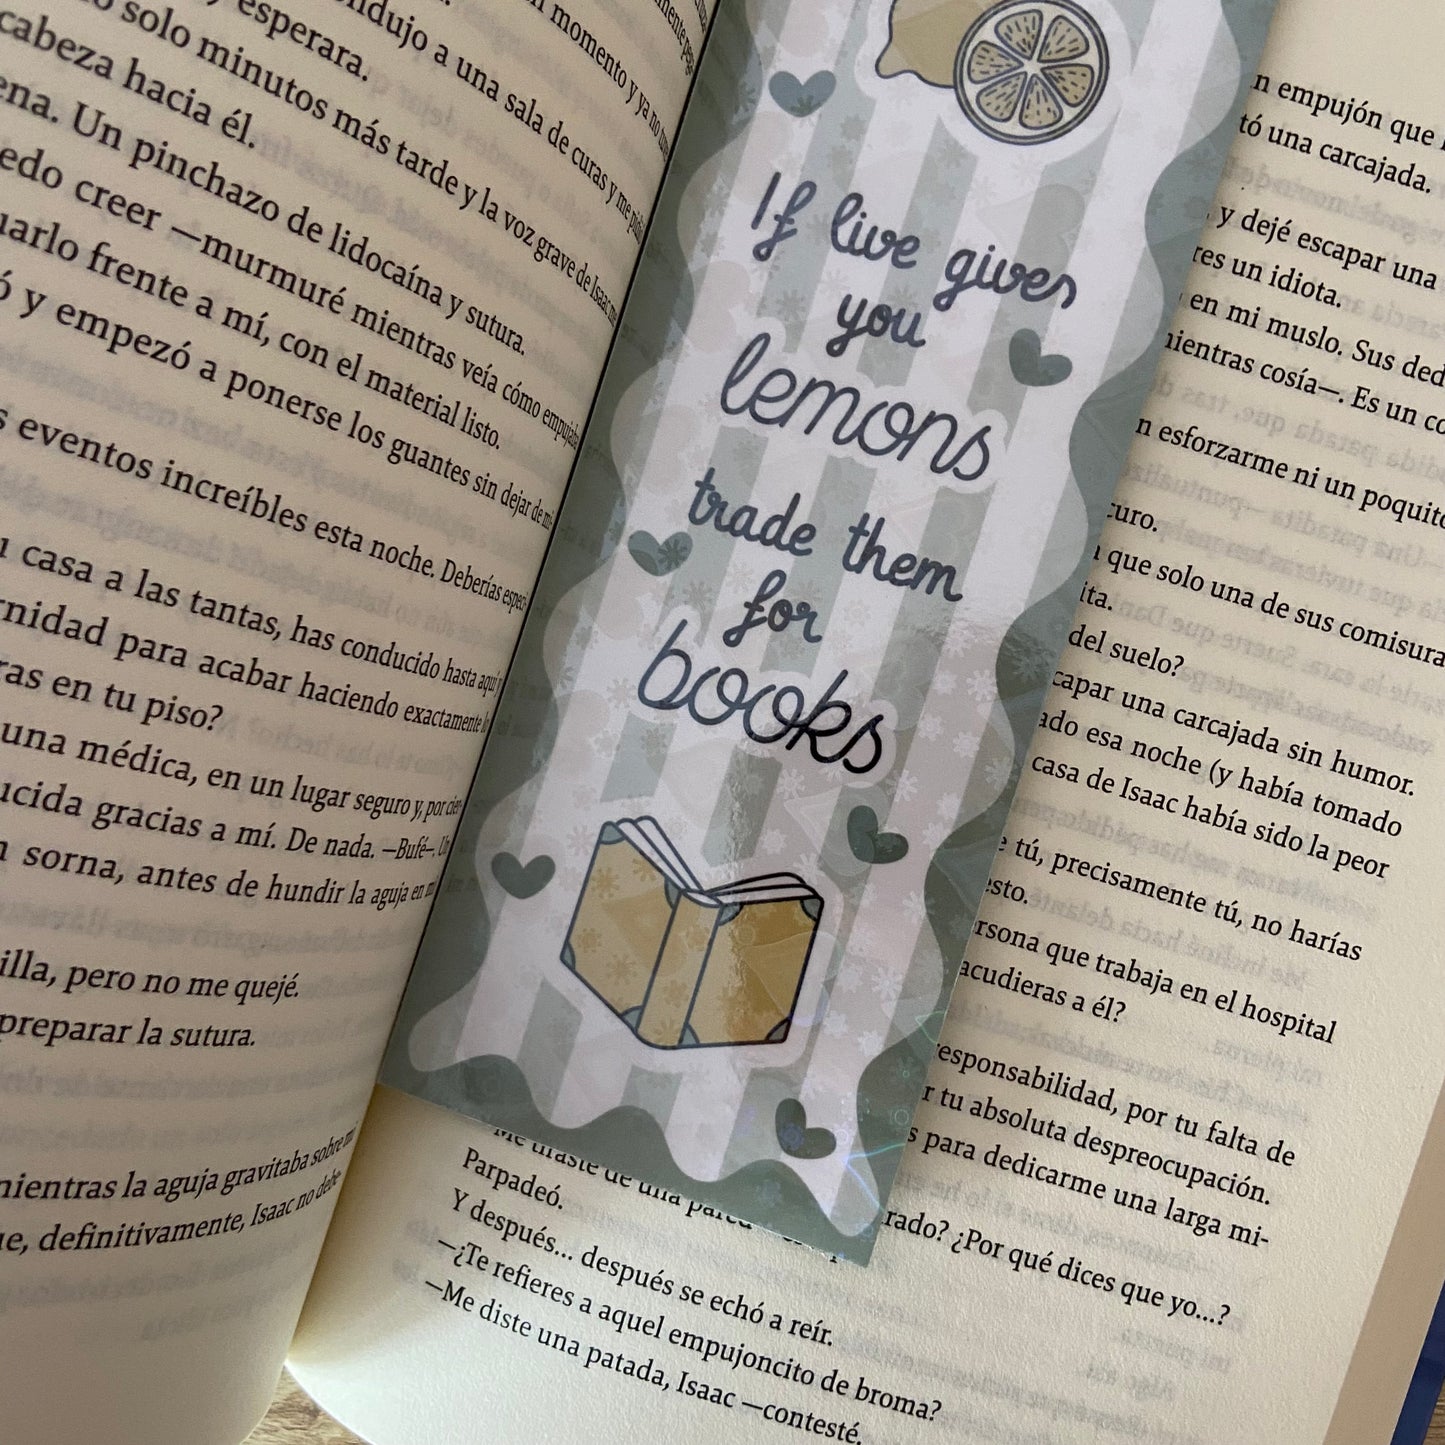 momento y ya no
ondujo a una sala de curas y me
esperara.
solo minutos más tarde y la voz grave de Isaac me
cabeza hacia él.
ena. Un pinchazo de lidocaína y sutura.
edo creer —murmuré mientras veía cómo empujaba
uarlo frente a mí, con el material listo.
ó y empezó a ponerse los guantes sin dejar de
s eventos increíbles esta noche. Deberías
casa a las tantas, has conducido hasta aquí
rnidad para acabar haciendo exactamente
ras en tu piso?
una médica, en un lugar seguro y, por
ucida gracias a mí. De nada. —Bufé—.
n sorna, antes de hundir la aguja en
illa, pero no me quejé.
preparar la sutura.
mientras la aguja gravitaba sobre
ue, definitivamente, Isaac no debe-
If live gives
you
lemons
trade them
for
books
n empujón que
tó una carcajada.
y dejé escapar una
res un idiota.
en mi muslo. Sus ded
mientras cosía—. Es un
n esforzarme ni un poquito
curo.
que solo una de sus comisura
ita.
del suelo?
capar una carcajada sin humor.
ado esa noche (y había tomado
casa de Isaac había sido la peor
e tú, precisamente tú, no harías
esto.
rsona que trabaja en el hospital
acudieras a él?
responsabilidad, por tu falta de
r tu absoluta despreocupación.
s para dedicarme una larga mi-
—Me tiraste de una pared
rado? ¿Por qué dices que yo...?
Parpadeó.
Y después... después se echó a reír.
—¿Te refieres a aquel empujoncito de broma?
—Me diste una patada, Isaac —contesté.